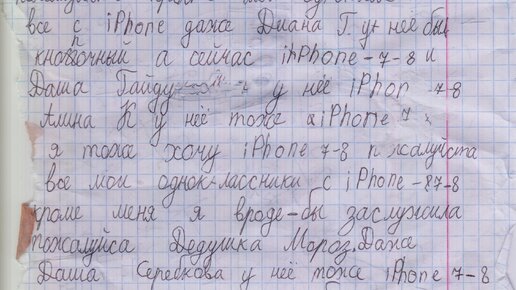 все с iPhone даже Диана Г. у неё был
кнопочный а сейчас ihPhone-7-8 и
Даша Гайду у неё iPhon 7-8
Алина К у неё тоже iPhone 7
я тоже хочу iPhone 7-8 п жалуйста
все мои однок-лассники с iPhone-87-8
кроме меня я вроде-бы заслужила
пожалуйса Дедушка Мороз. Даже
Даша Серебкова у неё тоже iPhone 7-8